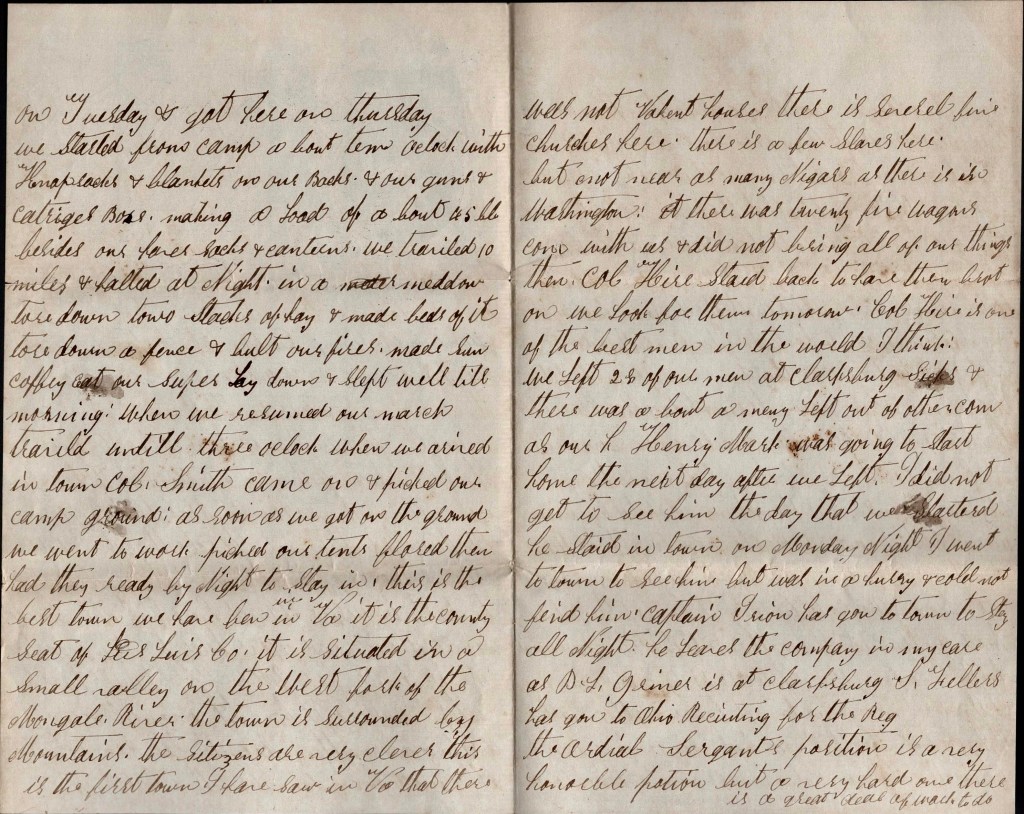 on Tuesday & got here on thursday
we Started from camp a bout tem oclock with
Knap sacks & blankets on our Backs. & our guns &
catriges Boxs. making a Load of a bout 45 lb
besides our haver sacks & canteens. we traviled 10
miles & halted at Night. in a meddow
tore down towo Stacks of hay & made beds of it
tore down a fence & bult our fires. made sum
coffey eat our Super Lay down & Slept well till
morning: when we resumed our march
travild untill three oclock when we arived
in town Col. Smith came on & picked our
camp ground: as soon as we got on the ground
we went to work piched our tents flored then
had they ready by Night to Stay in. this is the
best town we have ben in Va it is the county
Seat of Luis Co. it is Situated in a
Small valley on the West fork of the
Mongale. River. the town is surrounded by
Mountains. the sitizens are very clever this
is the first town I have saw in Va that there
was not Vakent houses there is severel fine
churches here. there is a few Slaves here.
but not near as many Nigars as there is in
Washington: there was twenty five wagons
com with us & did not bring all of our things
then. Col Hire Staid back to have them brot
on we Look for them tomorow. Col Hire is one
of the best men in the world I think:
we Left 28 of our men at Clarksburg Sick &
there was a bout a meny Left out of other com
as our h Henry Mark was going to Start
home the next day after we Left. I did not
get to see him the day that we Starterd
he Staid in town on Monday Night I went
to town to see him but was in a hurry & cold not
find him. captain Irion has gon to town to Stay
all Night. he Leaves the company in my care
as D. L. Griner is at Clarksburg S. Fellers
has gon to Ohio Reciuting for the Reg
the Ordial Sergants position is a very
honorble potion but a very hard one there
is a great deal of work to do